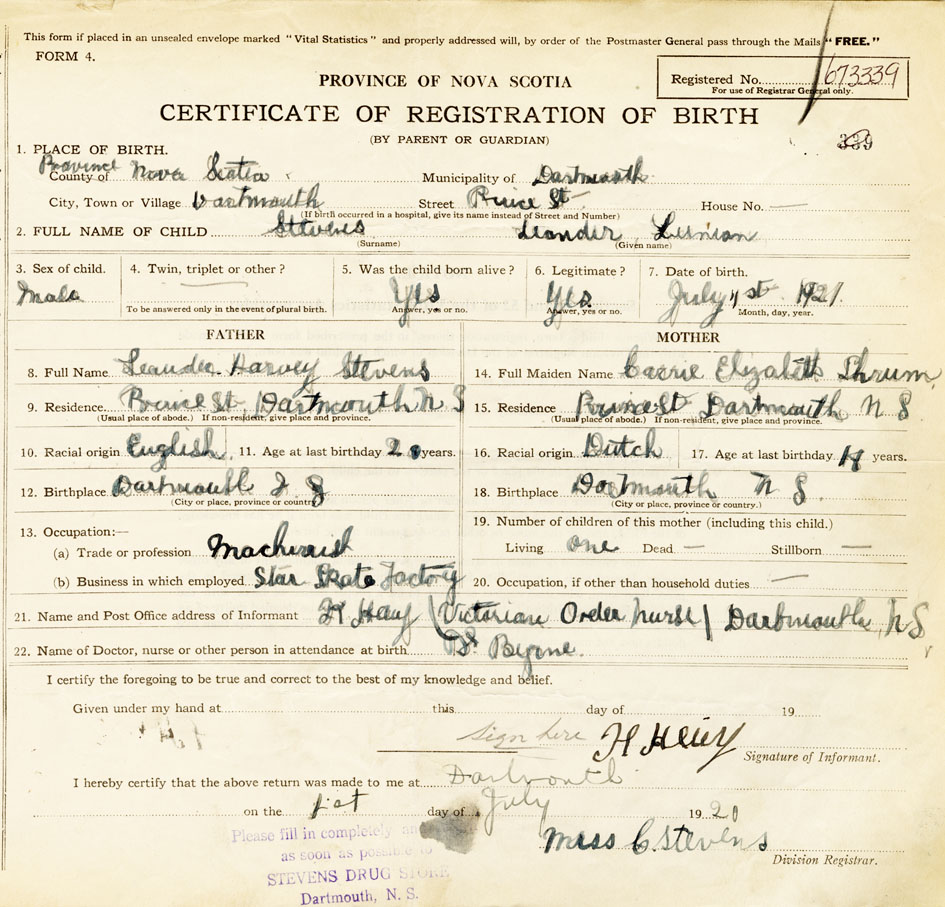 This form if placed in an unsealed envelope marked "Vital Statistics" and properly addressed will, by order of the Postmaster General pass through the Mails "FREE."
FORM 4.
PROVINCE OF NOVA SCOTIA
Registered No. 673339
For use of Registrar General only.
CERTIFICATE OF REGISTRATION OF BIRTH
(BY PARENT OR GUARDIAN)
339
1. PLACE OF BIRTH.
Province
County of Nova Scotia Municipality of Dartmouth
City, Town or Village Dartmouth Street Prince St. House No. —
(If birth occurred in a hospital, give its name instead of Street and Number)
2. FULL NAME OF CHILD Stevens Leander
(Surname) (Given name)
3. Sex of child. 4. Twin, triplet or other? 5. Was the child born alive? 6. Legitimate? 7. Date of birth.
Male Yes Yes July 1st 1921
To be answered only in the event of plural birth. Answer, yes or no. Answer, yes or no. Month, day, year.
FATHER MOTHER
8. Full Name Leander Harvey Stevens 14. Full Maiden Name Elizabeth Thrum
9. Residence. Prince St. Dartmouth N S 15. Residence Prince St Dartmouth N S
(Usual place of abode.) If non-resident, give place and province. (Usual place of abode.) If non-resident, give place and province.
10. Racial origin English 11. Age at last birthday years. 16. Racial origin Dutch 17. Age at last birthday years.
12. Birthplace Dartmouth N S 18. Birthplace Dartmouth N S.
(City or place, province or country.) (City or place, province or country.)
13. Occupation:— 19. Number of children of this mother (including this child.)
(a) Trade or profession Machinist Living one Dead — Stillborn —
(b) Business in which employed Star Skate Factory 20. Occupation, if other than household duties —
21. Name and Post Office address of Informant H (Victorian Order Nurse) Dartmouth, N S
22. Name of Doctor, nurse or other person in attendance at birth. Dr Byrne.
I certify the foregoing to be true and correct to the best of my knowledge and belief.
Given under my hand at this day of 19
Sign here H
Signature of Informant.
I hereby certify that the above return was made to me at Dartmouth
on the 1st day of July 1920
Miss C. Stevens
Division Registrar.
Please fill in completely and
as soon as possible to
STEVENS DRUG STORE
Dartmouth, N. S.